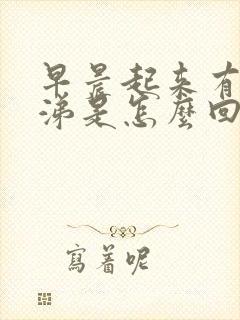 早晨起来有
涕是怎麼回
寫着呢